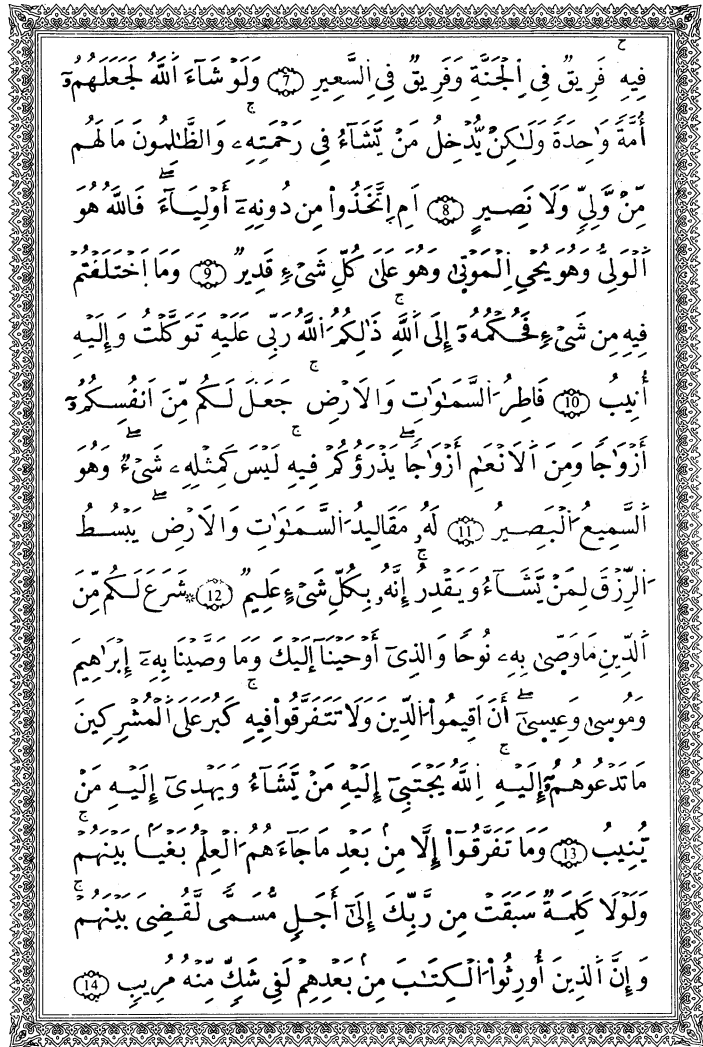 فِيهِ فَرِيقٌ فِي اِ۬لْجَنَّةِ وَفَرِيقٌ فِي اِ۬لسَّعِيرِ 7 وَلَوْ شَآءَ اَ۬للَّهُ لَجَعَلَهُمُۥٓ
أُمَّةٗ وَٰحِدَةٗ وَلَٰكِنْ يُّدْخِلُ مَنْ يَّشَآءُ فِي رَحْمَتِهِۦ وَالظَّٰلِمُونَ مَا لَهُم
مِّنْ وَّلِيّٖ وَلَا نَصِيرٍ 8 اَمِ اِ۪تَّخَذُواْ مِن دُونِهِۦٓ أَوْلِيَآءَ فَاللَّهُ هُوَ
اَ۬لْوَلِيُّ وَهُوَ يُحْيِ اِ۬لْمَوْتَىٰ وَهُوَ عَلَىٰ كُلِّ شَيْءٖ قَدِيرٌ 9 وَمَا اَ۪خْتَلَفْتُمْ
فِيهِ مِن شَيْءٖ فَحُكْمُهُۥٓ إِلَى اَ۬للَّهِ ذَٰلِكُمُ اُ۬للَّهُ رَبِّي عَلَيْهِ تَوَكَّلْتُ وَإِلَيْهِ
أُنِيبُ 10 فَاطِرُ اُ۬لسَّمَٰوَٰتِ وَالَارْضِ جَعَلَ لَكُم مِّنَ اَنفُسِكُمُۥٓ
أَزْوَٰجٗا وَمِنَ اَ۬لَانْعَٰمِ أَزْوَٰجٗا يَذْرَؤُكُمْ فِيهِ لَيْسَ كَمِثْلِهِۦ شَيْءٌ وَهُوَ
اَ۬لسَّمِيعُ اُ۬لْبَصِيرُ 11 لَهُۥ مَقَالِيدُ اُ۬لسَّمَٰوَٰتِ وَالَارْضِ يَبْسُطُ
اُ۬لرِّزْقَ لِمَنْ يَّشَآءُ وَيَقْدِرُ إِنَّهُۥ بِكُلِّ شَيْءٍ عَلِيمٌ 12 * شَرَعَ لَكُم مِّنَ
اَ۬لدِّينِ مَا وَصَّىٰ بِهِۦ نُوحٗا وَالذِيٓ أَوْحَيْنَآ إِلَيْكَ وَمَا وَصَّيْنَا بِهِۦٓ إِبْرَٰهِيمَ
وَمُوسَىٰ وَعِيسَىٰٓ أَنَ اَقِيمُواْ اُ۬لدِّينَ وَلَا تَتَفَرَّقُواْ فِيهِ كَبُرَ عَلَى اَ۬لْمُشْرِكِينَ
مَا تَدْعُوهُمُۥٓ إِلَيْهِ اِ۬للَّهُ يَجْتَبِيٓ إِلَيْهِ مَنْ يَّشَآءُ وَيَهْدِيٓ إِلَيْهِ مَنْ
يُّنِيبُ 13 وَمَا تَفَرَّقُوٓاْ إِلَّا مِنۢ بَعْدِ مَا جَآءَهُمُ اُ۬لْعِلْمُ بَغْيَاۢ بَيْنَهُمْ
وَلَوْلَا كَلِمَةٞ سَبَقَتْ مِن رَّبِّكَ إِلَىٰٓ أَجَلٖ مُّسَمّٗى لَّقُضِيَ بَيْنَهُمْ
وَإِنَّ اَ۬لذِينَ أُورِثُواْ اُ۬لْكِتَٰبَ مِنۢ بَعْدِهِمْ لَفِي شَكّٖ مِّنْهُ مُرِيبٖ 14